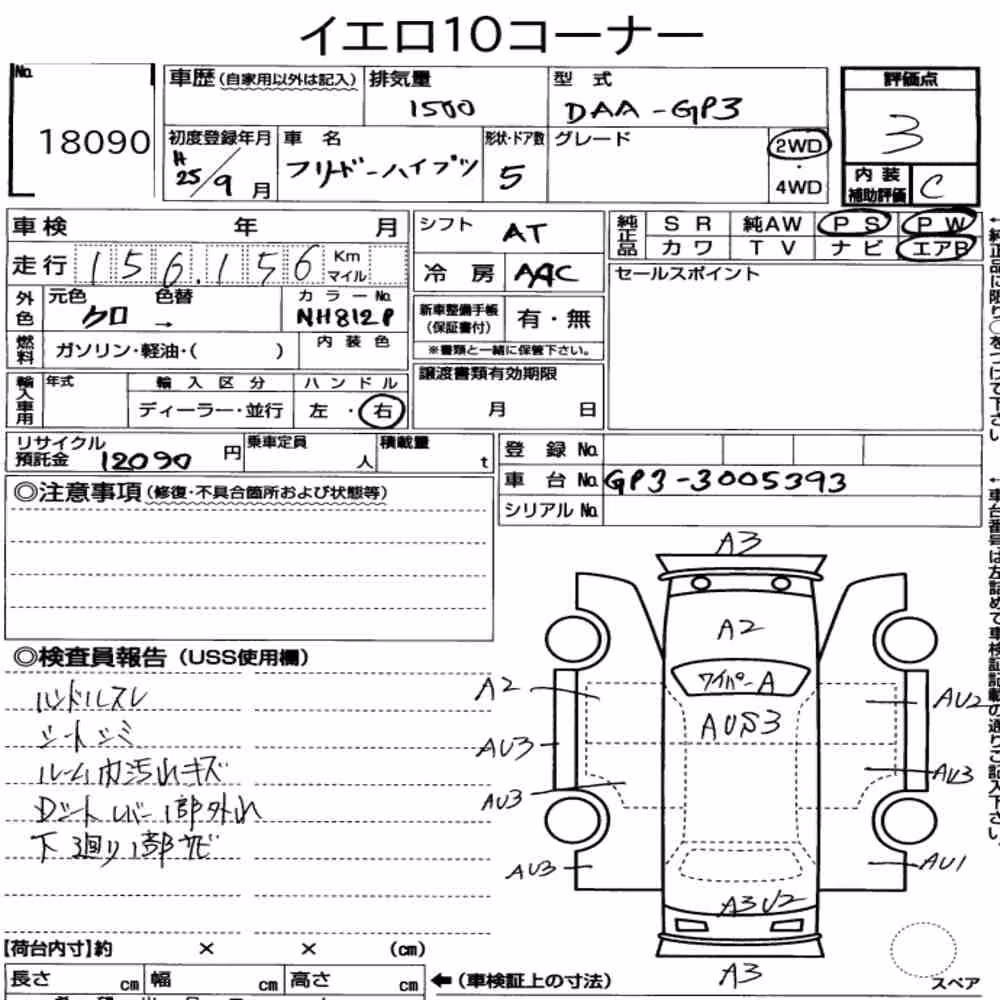 イエロ10コーナー
No.
18090
車歴(自家用以外は記入)
排気量
1500
型 式
DAA-GP3
評価点
3
初度登録年月
H25/9月
車 名
フリード-ハイブツ
形状・ドア数
5
グレード
2WD
・
4WD
内 装
補助評価
C
車検 年 月
シフト AT
純正品
S R 純AW P S P W
カ ワ T V ナ ビ エアB
走行 156,156 Km マイル
冷 房 AAC
セールスポイント
外色
元色 色替
クロ →
カ ラ ー No.
NH812P
新車整備手帳
(保証書付)
有・無
※書類と一緒に保管下さい。
燃料
ガソリン・軽油・( )
内 装 色
譲渡書類有効期限
月 日
輸入車用
年式
輸 入 区 分
ディーラー・並行
ハ ン ド ル
左 ・ 右
リサイクル
預託金 12090 円
乗車定員
人
積載量
t
登 録 No.
車 台 No. GP3-3005393
シリアル No.
←純正品に限り○をつけて下さい
←車台番号は左詰めで車検証記載の通りご記入下さい。
◎注意事項(修復・不具合箇所および状態等)
◎検査員報告(USS使用欄)
ハンドルスレ
シートシミ
ルーム内汚れキズ
Dシートレバー1部外れ
下廻り1部サビ
A3
A2
ワイパーA
AUS3
A2
AU2
AU3
AU3
AU3
AU3
AU1
A3U2
A3
スペア
【荷台内寸】約 × × (cm)
長さ cm 幅 cm 高さ cm
←(車検証上の寸法)